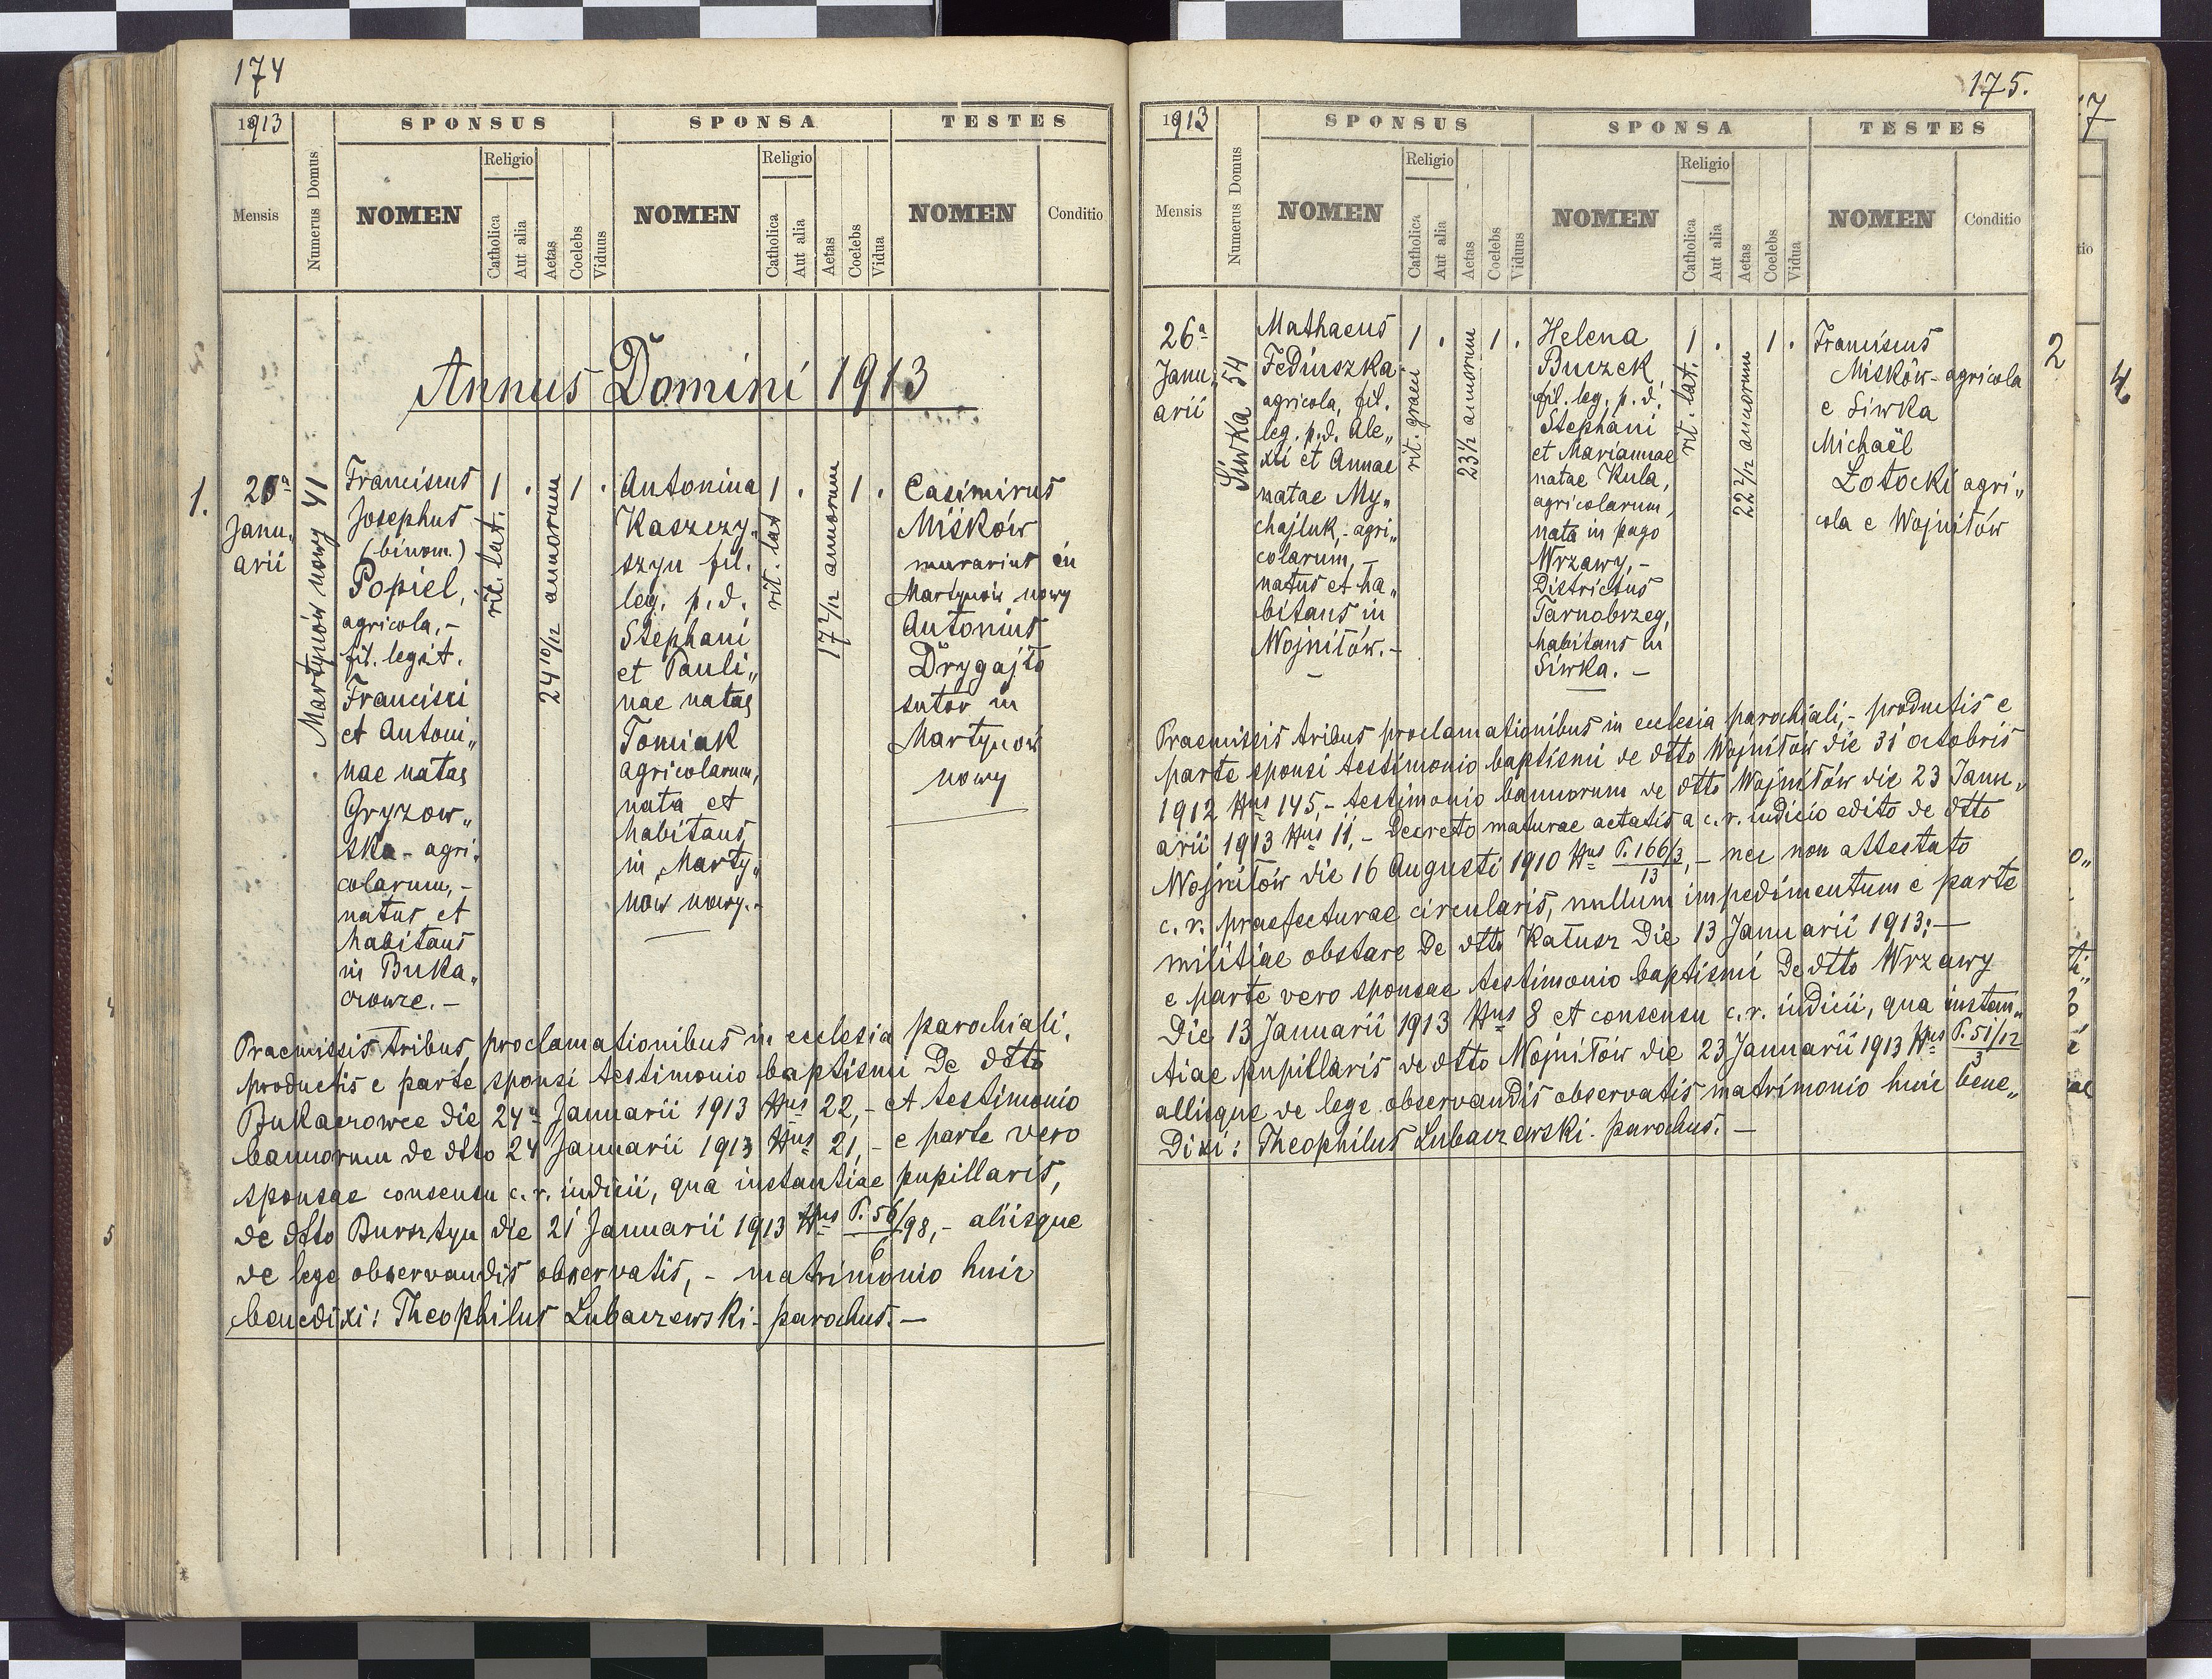 174
1913
SPONSUS
SPONSA
TESTES
Mensis
Numerus Domus
NOMEN
Religio
Catholica
Aut alia
Aetas
Coelebs
Viduus
NOMEN
Religio
Catholica
Aut alia
Aetas
Coelebs
Vidua
NOMEN
Conditio
Annus Domini 1913
1.
Janu„
arii
Martynów nowy 41
Franciscus
Josephus
(binom.)
Popiel,
agricola,-
fil. legit.
Francisci
et Antoni„
nae natae
Gryzow„
ska - agri„
colarum,-
natus et
habitans
in Buka„
czowce.-
1 .
rit. lat.
24 10/12 annorum
1 .
Antonina
Kaszczy„
szyn fil.
leg. p.d.
Stephani
et Pauli„
nae natae
Tomiak
agricolarum,
nata et
habitans
in Marty„
now nowy.-
1 .
rit. lat
17 2/12 annorum
1 .
Casimirus
Miśków
murarius in
Martynów nowy
Antonius
Drygajło
sutor in
Martynow
nowy
Praemissis tribus proclamationibus in ecclesia parochiali,
productis e parte sponsi testimonio baptismi de dtto
Bukaczowce die 24a Januarii 1913 Nus 22,- et testimonio
bannorum de dtto 24 Januarii 1913 Nus 21,- e parte vero
sponsae consensu c.r. iudicii, qua instantiae pupillaris,
de dtto Bursztyn die 21 Januarii 1913 Nus P. 56/98,- aliisque
6
de lege observandis observatis,- matrimonio huic
benedixi: Theophilus Lubaczewski- parochus.-
175.
1913
SPONSUS
SPONSA
TESTES
Mensis
Numerus Domus
NOMEN
Religio
Catholica
Aut alia
Aetas
Coelebs
Viduus
NOMEN
Religio
Catholica
Aut alia
Aetas
Coelebs
Vidua
NOMEN
Conditio
26a
Janu„
arii
Siwka 54
Mathaeus
Feduszka
agricola, fil.
leg. p.d. Ale„
xii et Annae
natae My„
chajluk,- agri„
colarum,-
natus et ha„
bitans in
Wojniłów.-
1 .
rit. graeci
23 1/2 annorum
1 .
Helena
Buczek
fil. leg. p. d.
Stephani
et Mariannae
natae Kula,
agricolarum,
nata in pago
Wrzawy,-
Districtus
Tarnobrzeg,
habitans in
Siwka.-
1 .
rit. lat.
22 7/12 annorum
1 .
Franciscus
Miśków- agricola
e Siwka
Michaël
Łotocki agri„
cola e Wojniłów
2
Praemissis tribus proclamationibus in ecclesia parochiali,- productis e
parte sponsi testimonio baptismi de dtto Wojniłów die 31 octobris
1912 Nus 145,- testimonio bannorum de dtto Wojniłów die 23 Janu„
arii 1913 Nus 11,- Decreto maturae aetatis a c.r. iudicio edito de dtto
Wojniłów die 16 Augusti 1910 Nus P. 166/3,- nec non attestato
13
c.r. praefecturae circularis, nullum impedimentum e parte
militiae obstare de dtto Kałusz die 13 Januarii 1913;-
e parte vero sponsae testimonio baptismi de dtto Wrzawy
die 13 Januarii 1913 Nus 8 et consensu c.r. iudicii, qua instan„
tiae pupillaris de dtto Wojniłów die 23 Januarii 1913 Nus P. 51/12
3
aliisque de lege observandis observatis matrimonio huic bene„
dixi: Theophilus Lubaczewski- parochus.-
4